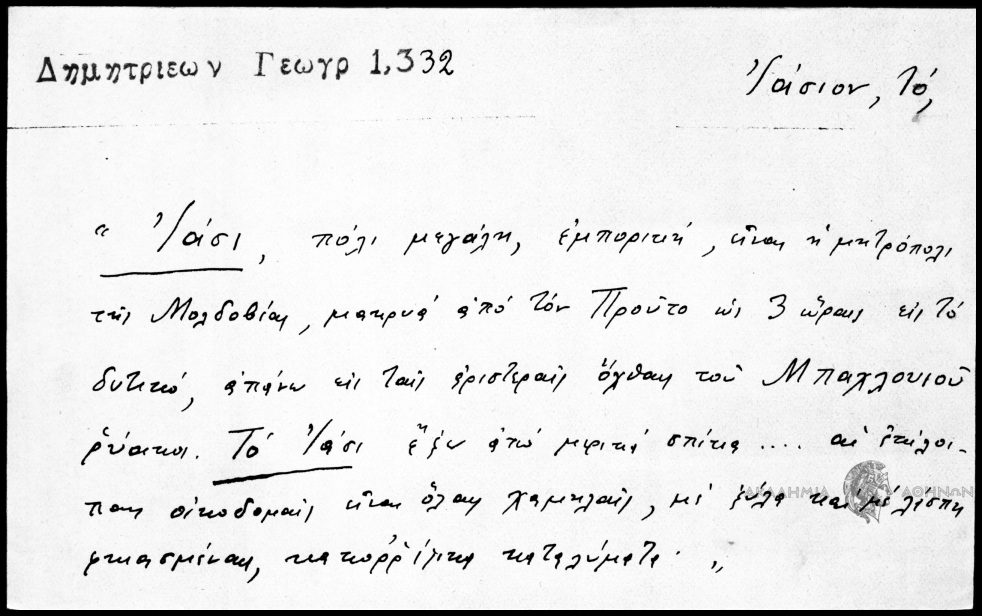 Δημητριεων Γεωγρ 1,332
Ἰάσιον, τό,
“ Ἰάσι, πόλι μεγάλη, ἐμπορική, εἶναι ἡ μητρόπολι
τῆς Μολδοβίας, μακρυά ἀπό τόν Προῦτο ὡς 3 ὥραις εἰς τό
δυτικό, ἀπάνω εἰς ταῖς ἀριστεραῖς ὄχθαις τοῦ Μπαχλουιοῦ
ῥύακος. Τό Ἰάσι ἔξω ἀπό μερικά σπίτια .... αἱ ἐπίλοι-
παις οἰκοδομαῖς εἶναι ὅλαις χαμηλαῖς, μέ ξύλα καί μέ λάσπη
φκιασμέναις, καταλύματα. „
ΑΚΑΔΗΜΙΑ ΑΘΗΝΩΝ